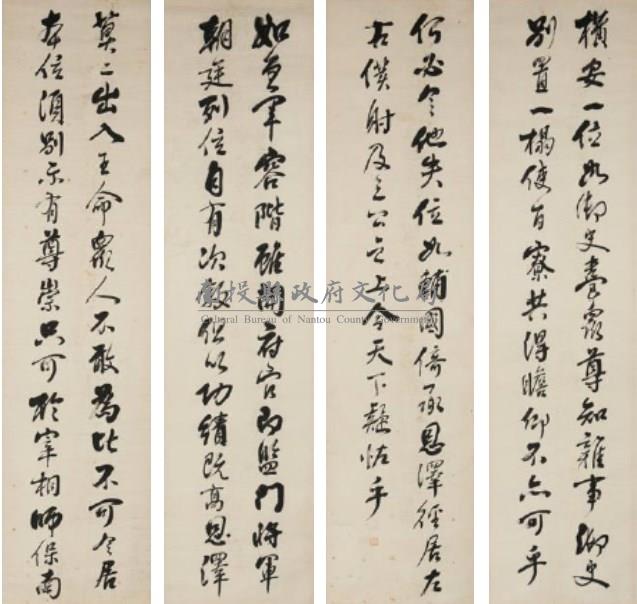 如魚軍容階雖開府官即監門將軍
朝廷列位自有次敘但以功績既高恩澤
莫二出入王命眾人不敢為比不可令居
本位須別示有尊崇只可於宰相師保南
橫安一位如御史臺眾尊知雜事御史
別置一榻使百寮共得瞻仰不亦可乎
何必令他失位如輔國倚承恩澤徑居左
右僕射及三公之上令天下疑怪乎
南投縣政府文化局
Cultural Bureau of Nantou County Government